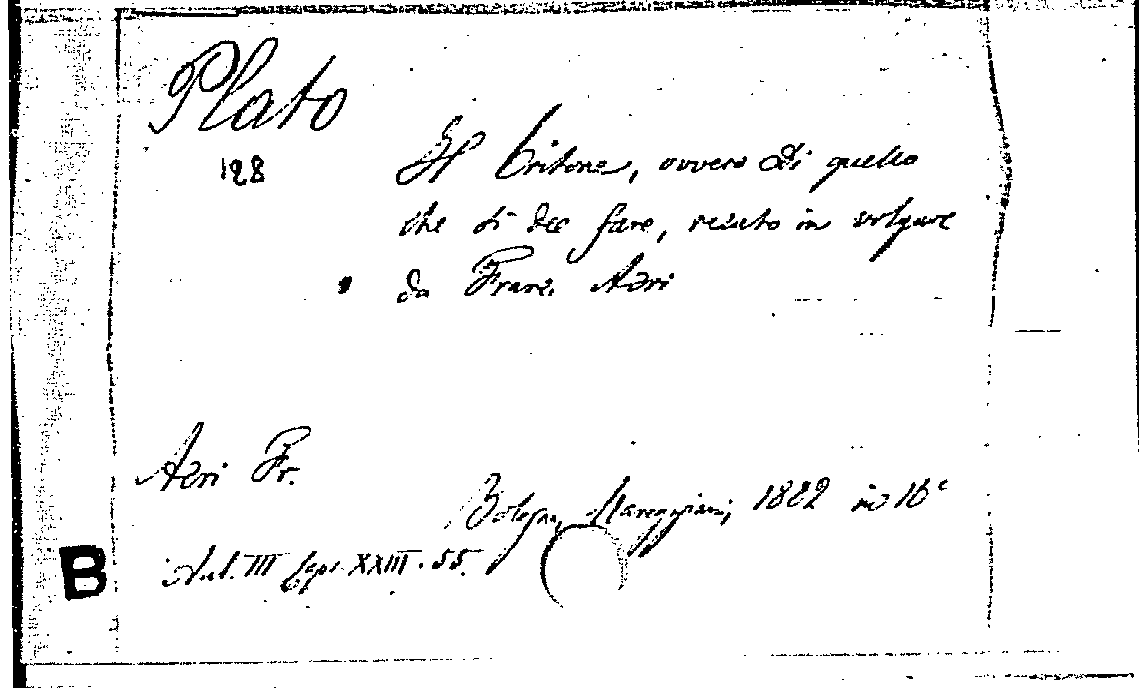 Plato
128
Il Critone, ovvero di quello
che si dee fare, recato in volgare
da Franc. Acri
Acri Fr.
Bologna, Mareggiani, 1882 in 16°
Aul. III Caps. XXIII. 55.
B